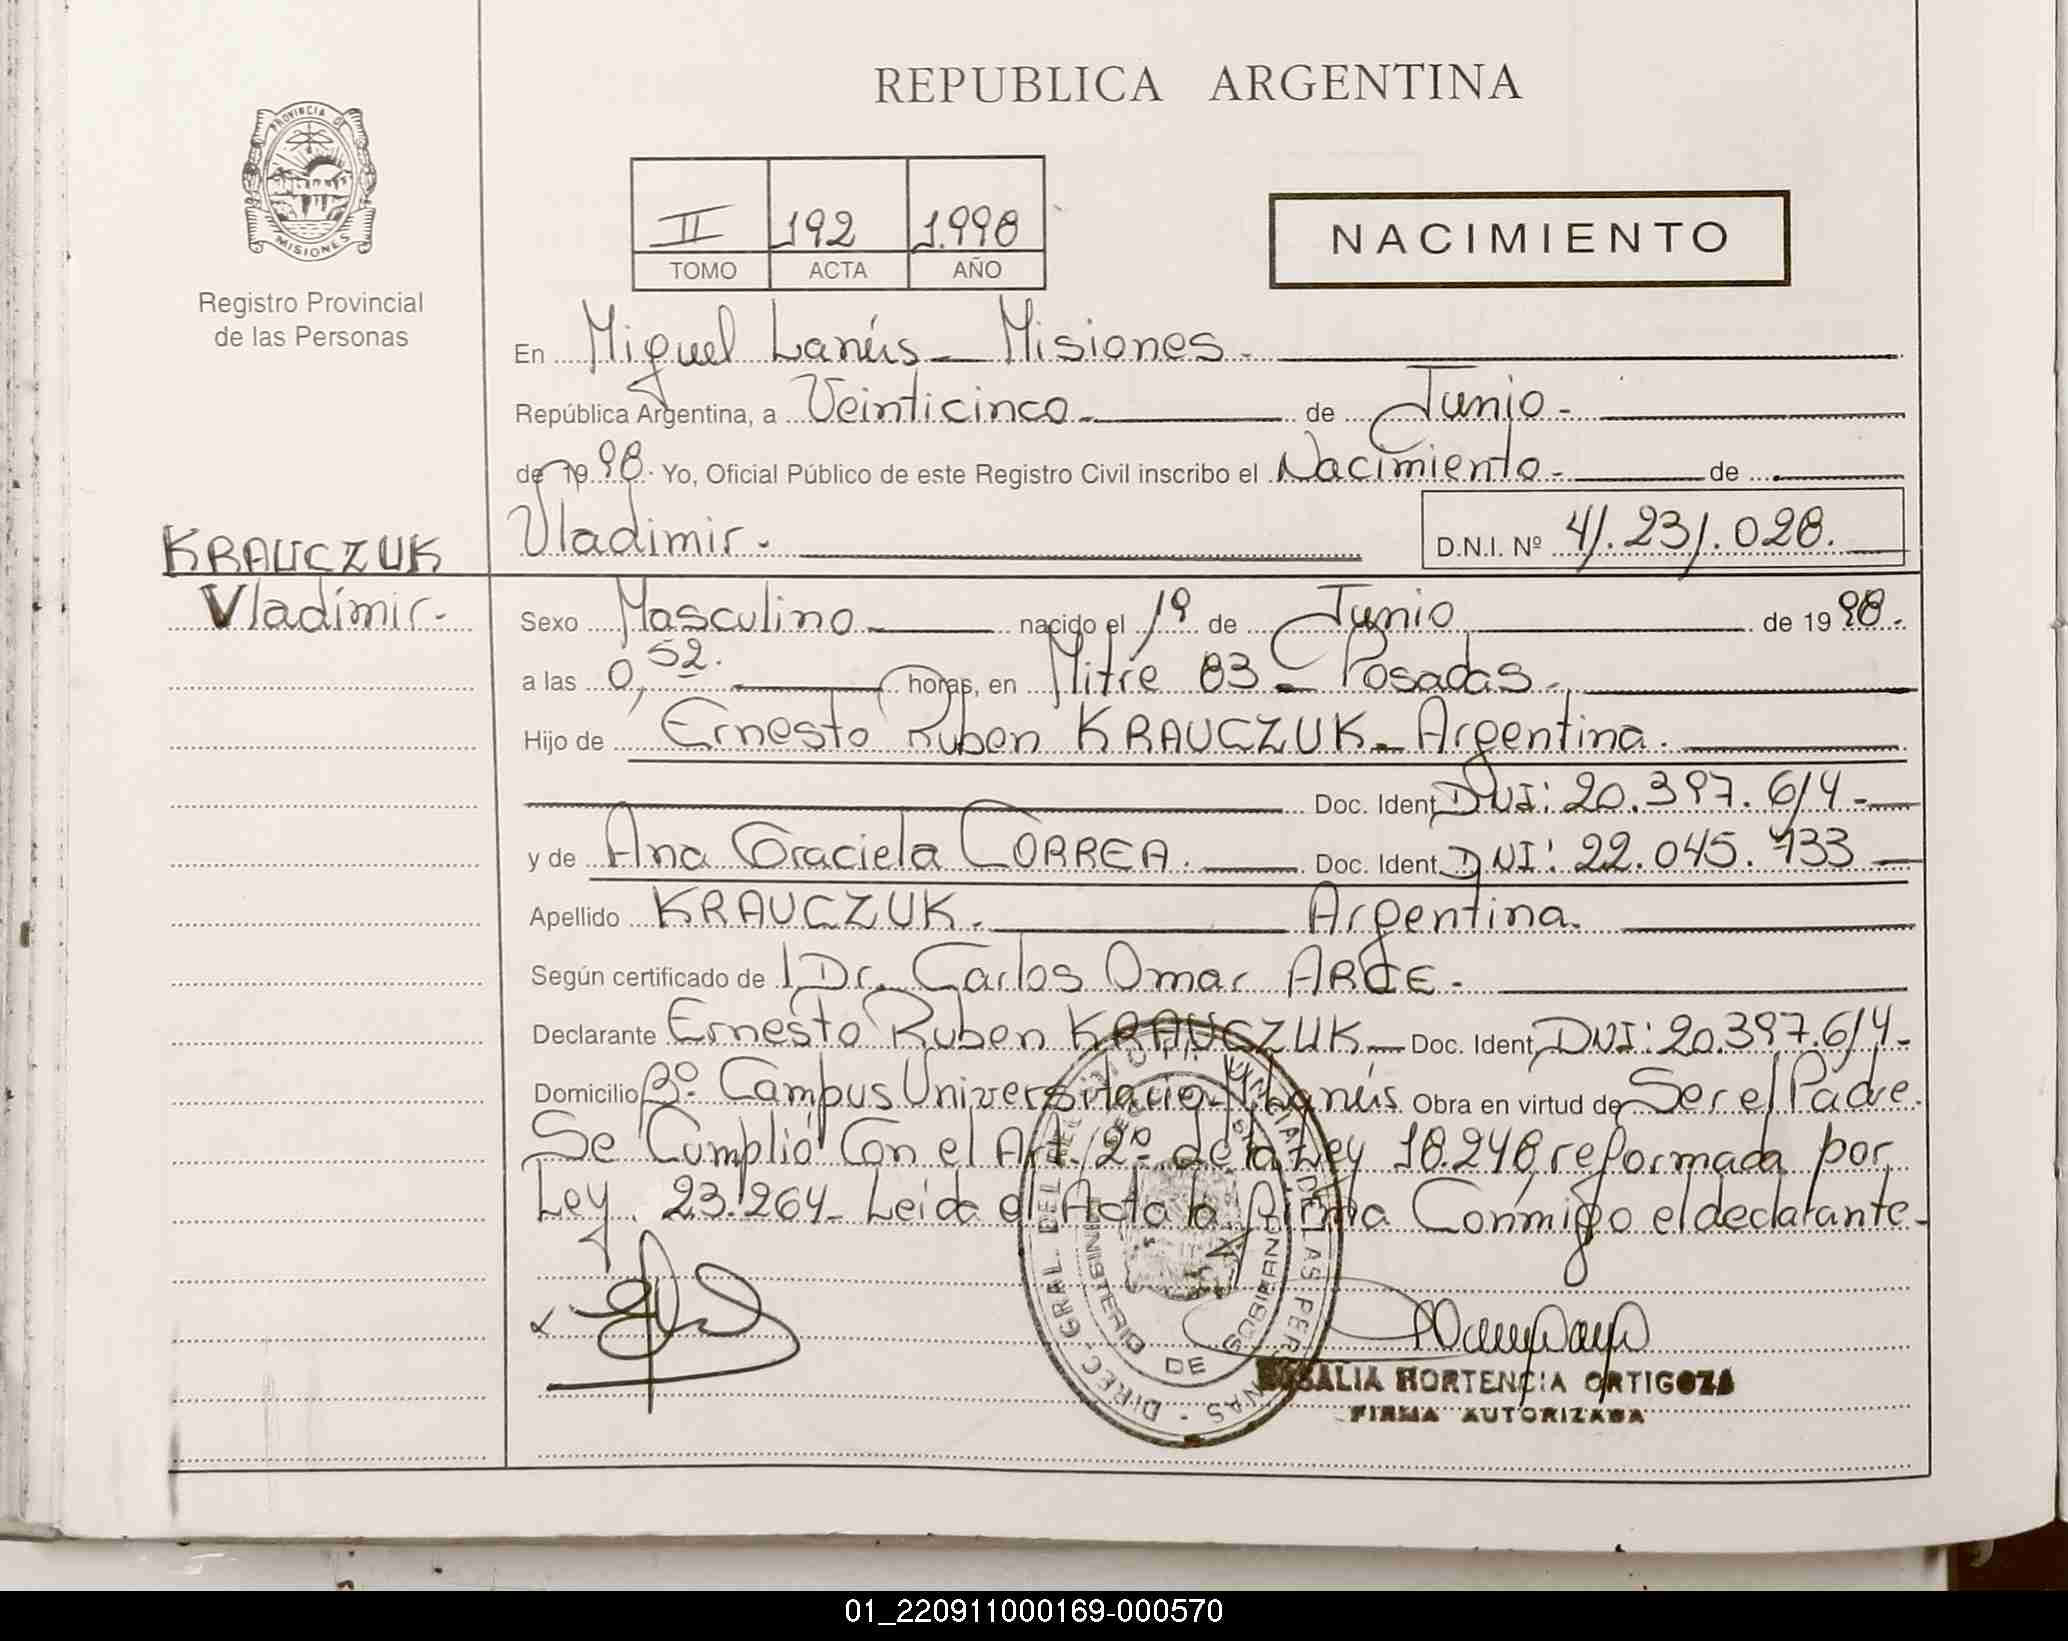 REPUBLICA ARGENTINA
PROVINCIA DE
MISIONES
Registro Provincial
de las Personas
II 192 1.998
TOMO ACTA AÑO
NACIMIENTO
En Miguel Lanús - Misiones -
República Argentina, a Veinticinco - de Junio -
de 19 98 - Yo, Oficial Público de este Registro Civil inscribo el Nacimiento - de
KRAUCZUK
Vladimir -
Vladimir - D.N.I. Nº 41.231.028.
Sexo Masculino - nacido el 19 de Junio de 19 98 -
a las 0,52. horas, en Mitre 83 - Posadas -
Hijo de Ernesto Ruben KRAUCZUK - Argentina.
Doc. Ident. DNI: 20.397.614 -
y de Ana Graciela CORREA. Doc. Ident. DNI: 22.045.733
Apellido KRAUCZUK. Argentina.
Según certificado de Dr. Carlos Omar ARCE -
Declarante Ernesto Ruben KRAUCZUK - Doc. Ident. DNI: 20.397.614 -
Domicilio Bº Campus Universitario - M. Lanús Obra en virtud de Ser el Padre.
Se Cumplió Con el Art. 2º de la Ley 18.248, reformada por
Ley 23.264 - Leída el Acta la firma Conmigo el declarante -
DIREC. GRAL. DEL REGISTRO PROVINCIAL DE LAS PERSONAS
MINISTERIO DE GOBIERNO
ROSALIA HORTENCIA ORTIGOZA
FIRMA AUTORIZADA
01_220911000169-000570